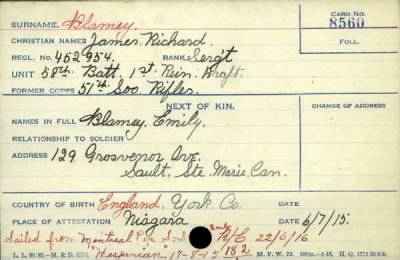 SURNAME. Blamey.
CARD NO.
8560
CHRISTIAN NAMES James Richard.
FOLL.
REGL. NO. 452954. RANK Serg't
UNIT 58th. Batt. 1st. Rein. Draft.
FORMER CORPS 51th. Soo Rifles.
NEXT OF KIN.
CHANGE OF ADDRESS
NAMES IN FULL Blamey, Emily.
RELATIONSHIP TO SOLDIER
ADDRESS 129 Grosvenor Ave.
Sault, Ste. Marie, Can.
COUNTRY OF BIRTH England, York Co. DATE
PLACE OF ATTESTATION Niagara DATE 6/7/15.
Sailed from Montreal Per S.S. 22/6/16
Hesperian 17-8-15 182
L. L. 90. M. & D. M. F. W. 22. H. Q. 1772